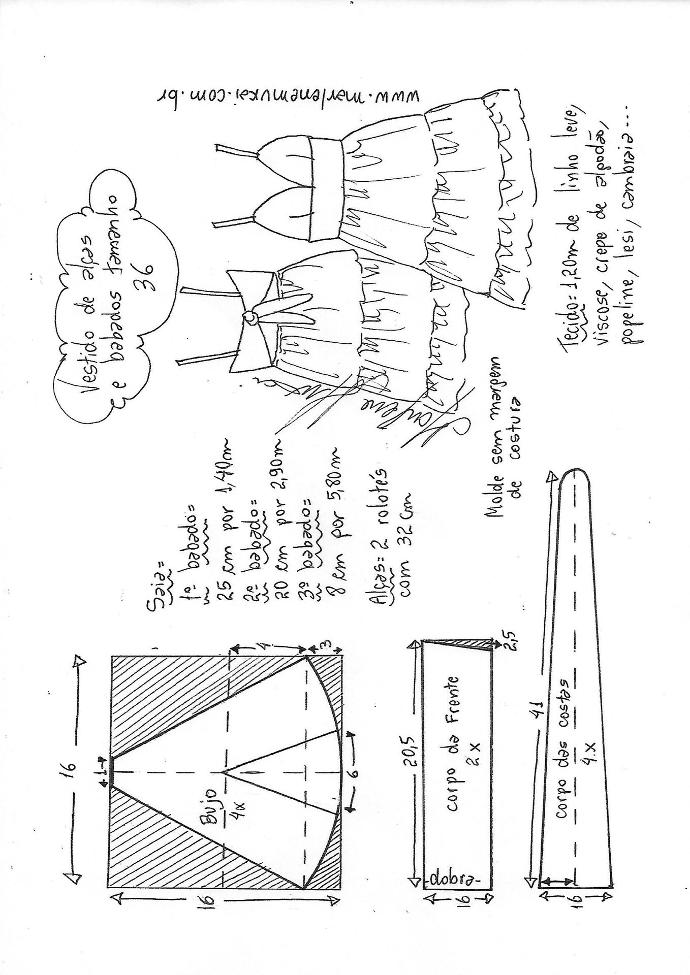 Vestido de alças
e babados tamanho
36
www.marlenemukai.com.br
Tecido= 1,20m de linho leve,
viscose, crepe de algodão,
popeline, lesi, cambraia...
Saia=
1º babado=
25 cm por 1,40m
2º babado=
20 cm por 2,90m
3º babado=
8 cm por 5,80m
Alças= 2 rolotés
com 32 cm
Molde sem margem
de costura
Marlene Mukai
16
1
Bujo
4x
4
3
6
16
20,5
corpo da Frente
2x
-dobra-
16
2,5
41
corpo das costas
4.x
16